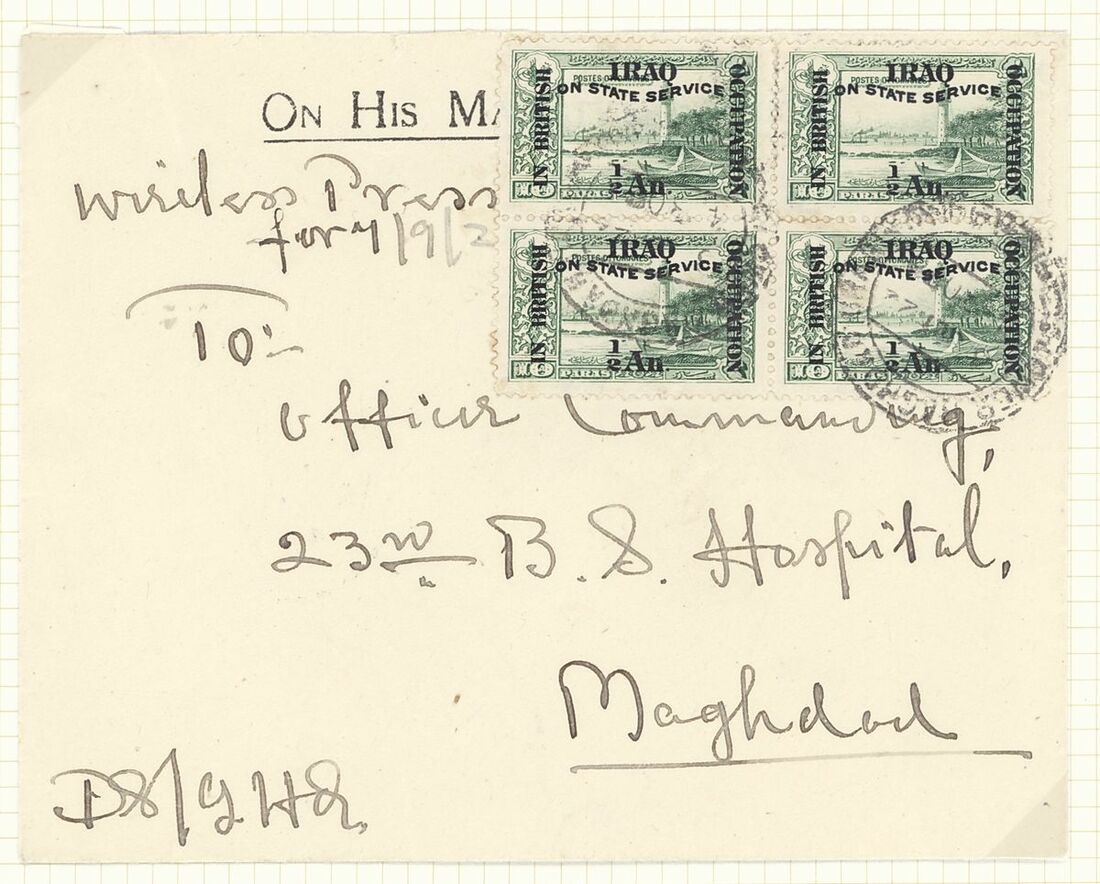 ON HIS MA
Wireless Press
for 4/9/2
10:-
Officer Commanding,
23rd B. S. Hospital,
Baghdad
DS/GHQ.
IRAQ
ON STATE SERVICE
IN BRITISH
OCCUPATION
POSTES OTTOMANES
1/2 An.
10 PARAS 10
IRAQ
ON STATE SERVICE
IN BRITISH
OCCUPATION
POSTES OTTOMANES
1/2 An.
10 PARAS
IRAQ
ON STATE SERVICE
IN BRITISH
OCCUPATION
POSTES OTTOMANES
1/2 An.
10 PARAS
IRAQ
ON STATE SERVICE
IN BRITISH
OCCUPATION
POSTES OTTOMANES
1/2 An.
10 PARAS